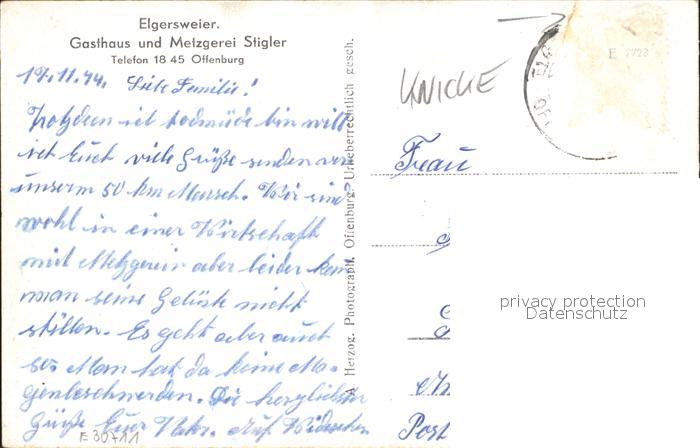 Elgersweier.
Gasthaus und Metzgerei Stigler
Telefon 18 45 Offenburg
Liebe Familie!
Trotzdem ich todmüde bin will
ich Euch viele Grüße senden von
unserm 50 km Marsch. Wir sind
wohl in einer Wirtschaft
mit Metzgerei aber leider kann
man seine Gelüste nicht
stillen. Es geht aber auch
so. Man hat da keine Ma-
genbeschwerden. Die herzlichsten
Grüße Euer Auf Wiedersehen
E 30711
A Herzog. Photograph. Offenburg. Urheberrechtlich gesch.
KNICKE
E 7723
Frau
Post
privacy protection
Datenschutz